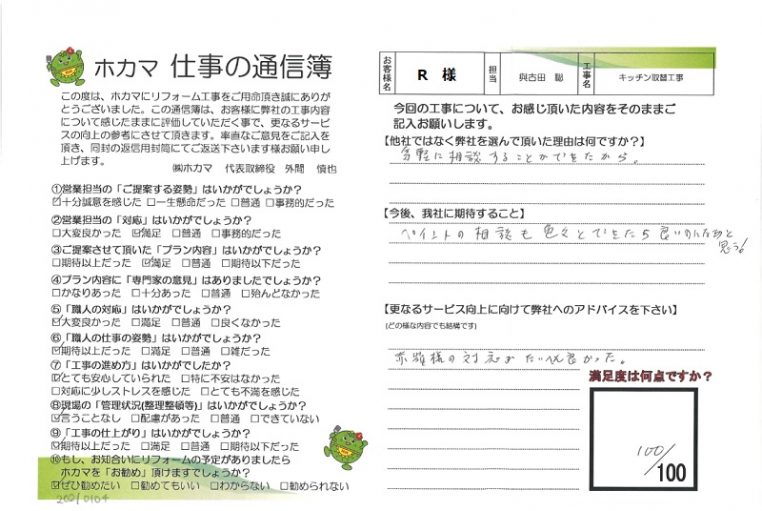 ホカマ 仕事の通信簿
この度は、ホカマにリフォーム工事をご用命頂き誠にありが
とうございました。この通信簿は、お客様に弊社の工事内容
について感じたままに評価していただく事で、更なるサービ
スの向上の参考にさせて頂きます。率直なご意見をご記入を
頂き、同封の返信用封筒にてご返送下さいます様お願い申し
上げます。
㈱ホカマ 代表取締役 外間 慎也
①営業担当の「ご提案する姿勢」はいかがでしょうか?
☑十分誠意を感じた □一生懸命だった □普通 □事務的だった
②営業担当の「対応」はいかがでしょうか?
□大変良かった ☑満足 □普通 □事務的だった
③ご提案させて頂いた「プラン内容」はいかがでしょうか?
□期待以上だった ☑満足 □普通 □期待以下だった
④プラン内容に「専門家の意見」はありましたでしょうか?
□かなりあった □十分あった □普通 □殆んどなかった
⑤「職人の対応」はいかがでしょうか?
☑大変良かった □満足 □普通 □良くなかった
⑥「職人の仕事の姿勢」はいかがでしょうか?
☑期待以上だった □満足 □普通 □雑だった
⑦「工事の進め方」はいかがでしたか?
☑とても安心していられた □特に不安はなかった
□対応に少しストレスを感じた □とても不満を感じた
⑧現場の「管理状況(整理整頓等)」はいかがでしょうか?
☑言うことなし □配慮があった □普通 □できていない
⑨「工事の仕上がり」はいかがでしょうか?
☑期待以上だった □満足 □普通 □期待以下だった
⑩もし、お知合いにリフォームの予定がありましたら
ホカマを「お勧め」頂けますでしょうか?
☑ぜひ勧めたい □勧めてもいい □わからない □勧められない
200/0104
お客様名 R 様 担当 與古田 聡 工事名 キッチン取替工事
今回の工事について、お感じ頂いた内容をそのままご
記入お願いします。
【他社ではなく弊社を選んで頂いた理由は何ですか?】
気軽に相談することができたから。
【今後、我社に期待すること】
ペイントの相談も色々とできたら良いのになあと
思う!
【更なるサービス向上に向けて弊社へのアドバイスを下さい】
(どの様な内容でも結構です)
赤嶺様の対応がたいへん良かった。
満足度は何点ですか?
100/
100